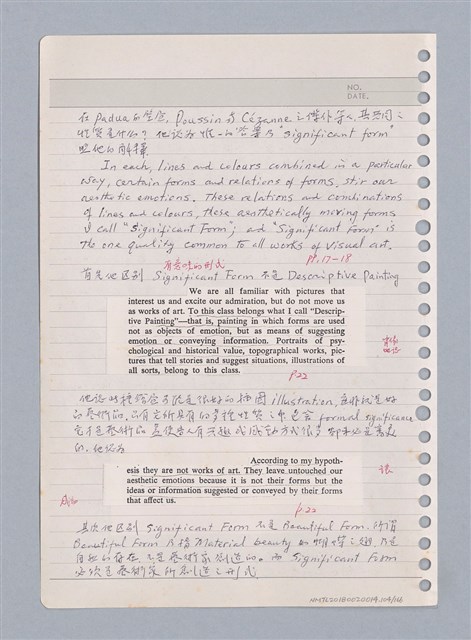 NO.
DATE.
在 Padua 的 Poussin 及 Cézanne 之傑作等,其共同之
性質是什么? 他認為惟一的答案乃 "significant form"
照他的解釋
In each, lines and colours combined in a particular
way, certain forms and relations of forms, stir our
aesthetic emotions. These relations and combinations
of lines and colours, these aesthetically moving forms
I call "Significant Form"; and "Significant Form" is
the one quality common to all works of visual art.
有意味的形式 pp. 17-18
首先他区别 Significant Form 不是 Descriptive Painting
We are all familiar with pictures that
interest us and excite our admiration, but do not move us
as works of art. To this class belongs what I call "Descrip-
tive Painting"—that is, painting in which forms are used
not as objects of emotion, but as means of suggesting
emotion or conveying information. Portraits of psy-
chological and historical value, topographical works, pic-
tures that tell stories and suggest situations, illustrations of
all sorts, belong to this class.
p.22
他認為 插图 illustration,
的藝術品,只有它所具有的 性質之 formal significance
它不是藝術品
的. 他認為
According to my hypoth-
esis they are not works of art. They leave untouched our
aesthetic emotions because it is not their forms but the
ideas or information suggested or conveyed by their forms
that affect us.
p.22
其次他区别 Significant Form 不是 Beautiful Form. 所謂
Beautiful Form 乃指 Material beauty 如 蝴蝶之翅,乃是
自然的存在 不是藝術家創造的。而 Significant Form
必須是藝術家所創造之形式
NMTL20180020014.104/166